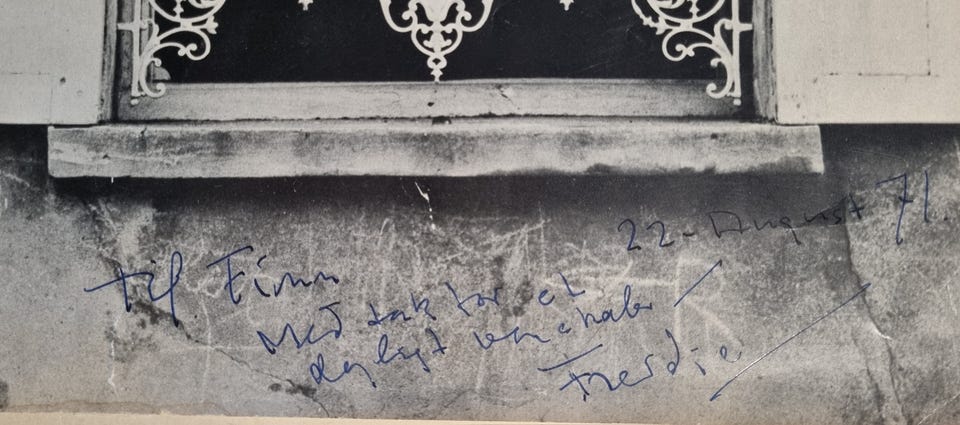 22. August 71.
til Finn
Med tak for et
dejligt venskab
Freddie